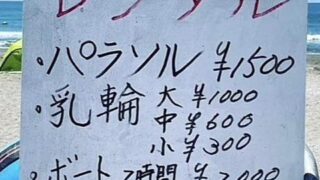 レンタル
・パラソル ¥1500
・乳輪 大 ¥1000
中 ¥600
小 ¥300
・ボート 2時間 ¥2000